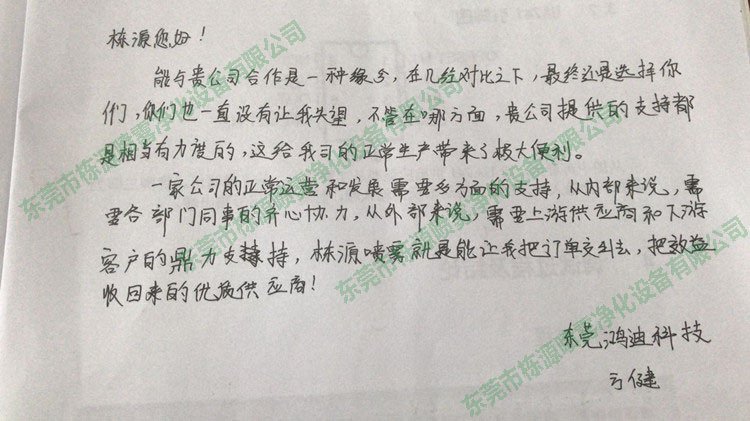 栋源您好！
能与贵公司合作是一种缘分，在几经对比之下，最终还是选择你
们，你们也一直没有让我失望，不管在哪方面，贵公司提供的支持都
是相当有力度的，这给我司的正常生产带来了极大便利。
一家公司的正常运营和发展需要多方面的支持，从内部来说，需
要各部门同事的齐心协力，从外部来说，需要上游供应商和下游
客户的鼎力支持，栋源喷雾就是能让我把订单交出去，把效益
收回来的优质供应商！
东莞鸿迪科技
东莞市栋源喷雾净化设备有限公司
东莞市栋源喷雾净化设备有限公司
东莞市栋源喷雾净化设备有限公司
东莞市栋源喷雾净化设备有限公司